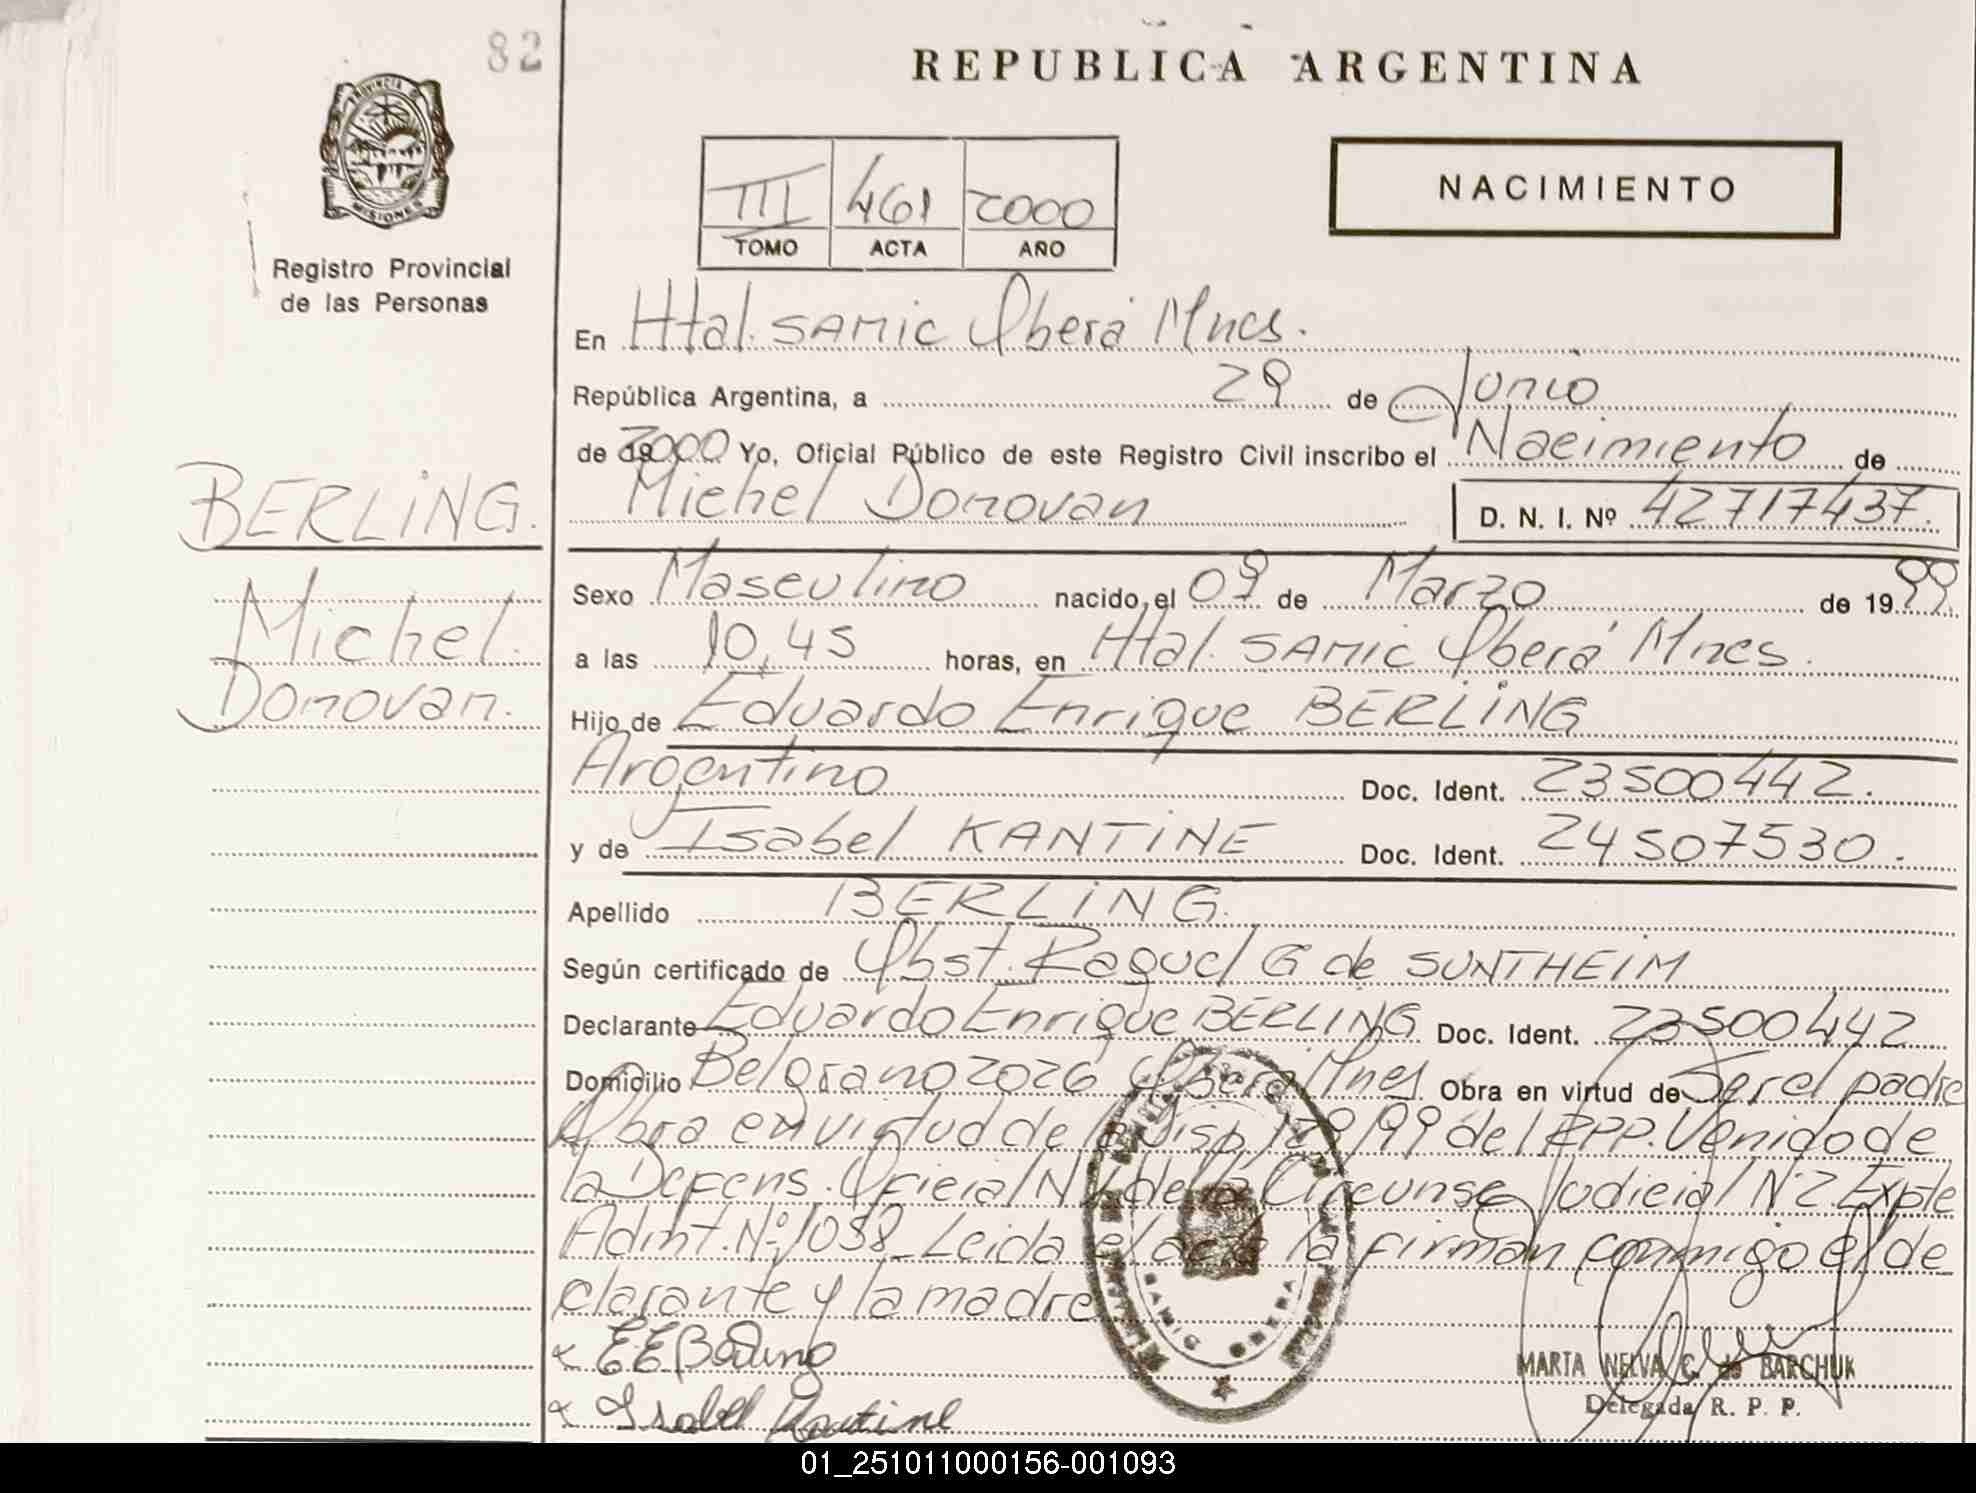 82
REPUBLICA ARGENTINA
PROVINCIA DE
MISIONES
Registro Provincial
de las Personas
III 461 2000
TOMO ACTA AÑO
NACIMIENTO
En Htal. SAMIC Oberá Mnes.
República Argentina, a 29 de Junio
de 2000 Yo, Oficial Público de este Registro Civil inscribo el Nacimiento de
Michel Donovan D. N. I. Nº 42717437.
BERLING.
Michel
Donovan.
Sexo Masculino nacido, el 09 de Marzo de 1999
a las 10,45 horas, en Htal. SAMIC Oberá Mnes.
Hijo de Eduardo Enrique BERLING
Argentino Doc. Ident. 23500442.
y de Isabel KANTINE Doc. Ident. 24507530.
Apellido BERLING.
Según certificado de Obst. Raquel G de SUNTHEIM
Declarante Eduardo Enrique BERLING Doc. Ident. 23500442
Domicilio Belgrano 2026 Oberá Mnes Obra en virtud de Ser el padre
Obra en virtud de la Disp /99 del RPP. Venido de
la Defens. Oficial Nº de la Circunsc Judicial Nº 2. Expte
Admt. Nº 1058_ Leida el acta la firman conmigo el de
clarante y la madre
Isabel Kantine
SAMIC OBERA
MARTA NELVA C. de BARCHUK
Delegada R. P. P.
01_251011000156-001093